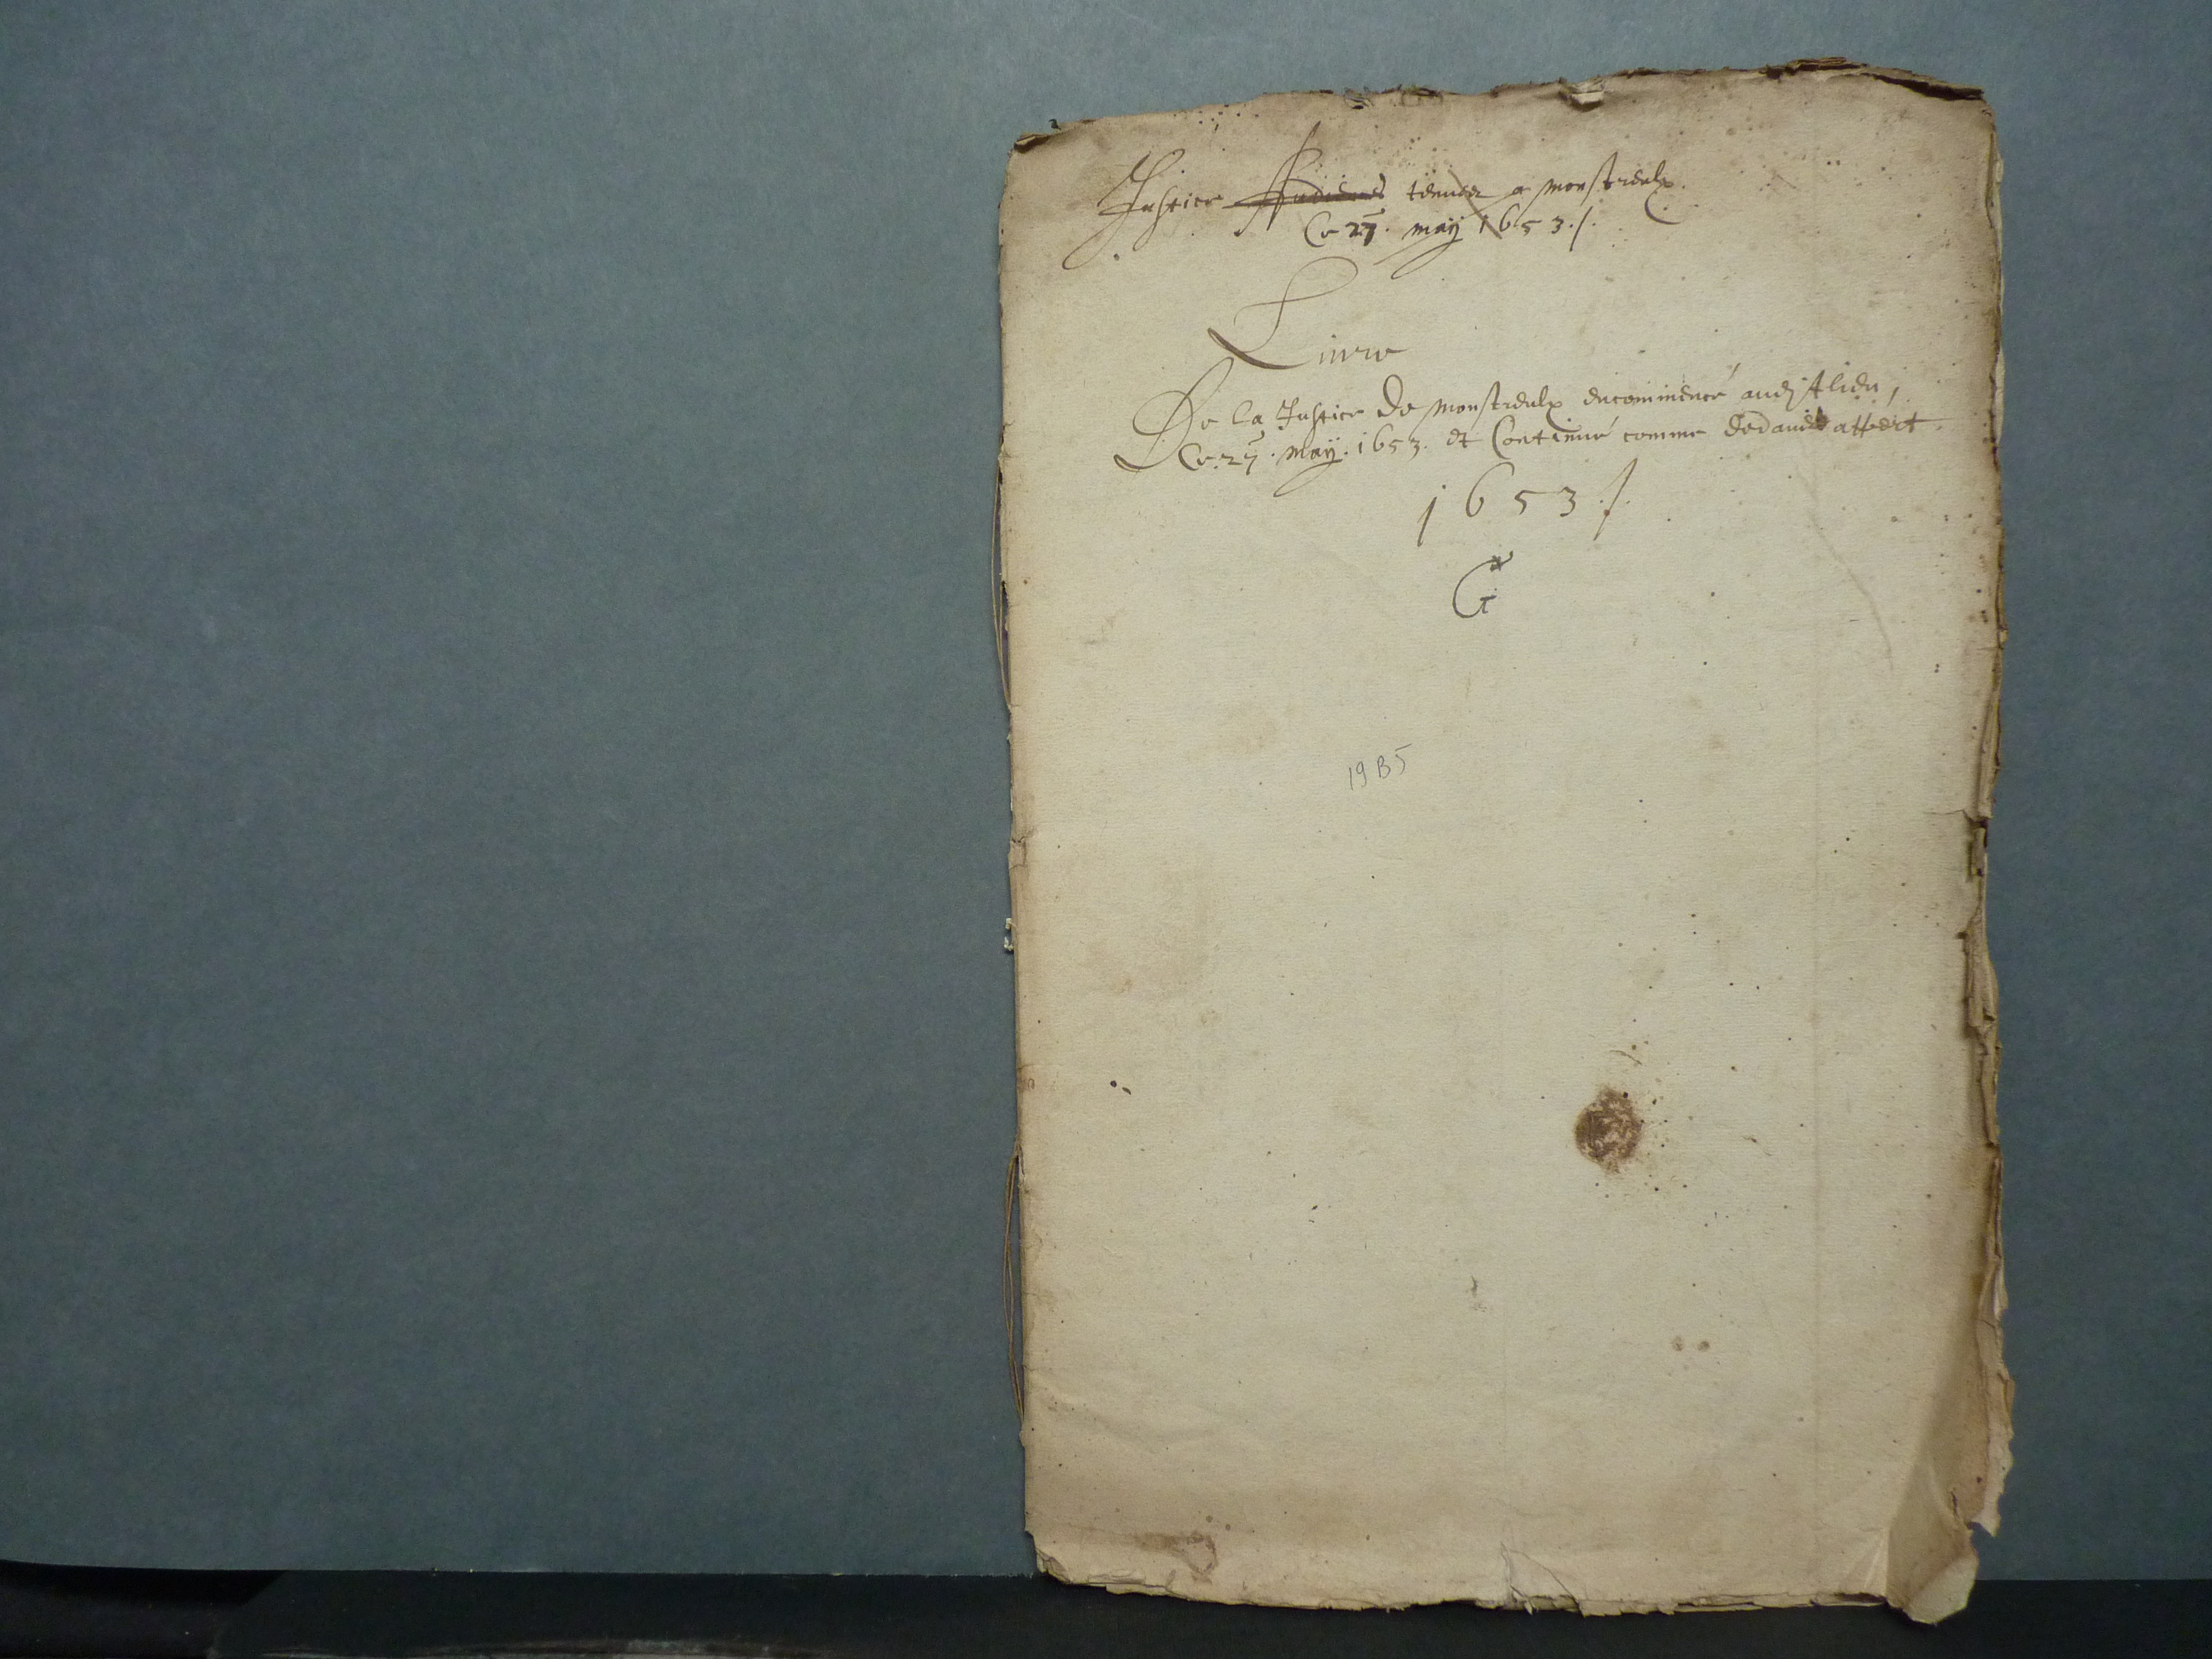 Justice Audience tenue a Monstreulx
Ce 27. may 1653./.
Livre
De la Justice de Monstreulx encommencé audit lieu,
Ce 27. may. 1653. et Continué comme dedans appert.
1653./.
G
19 B5